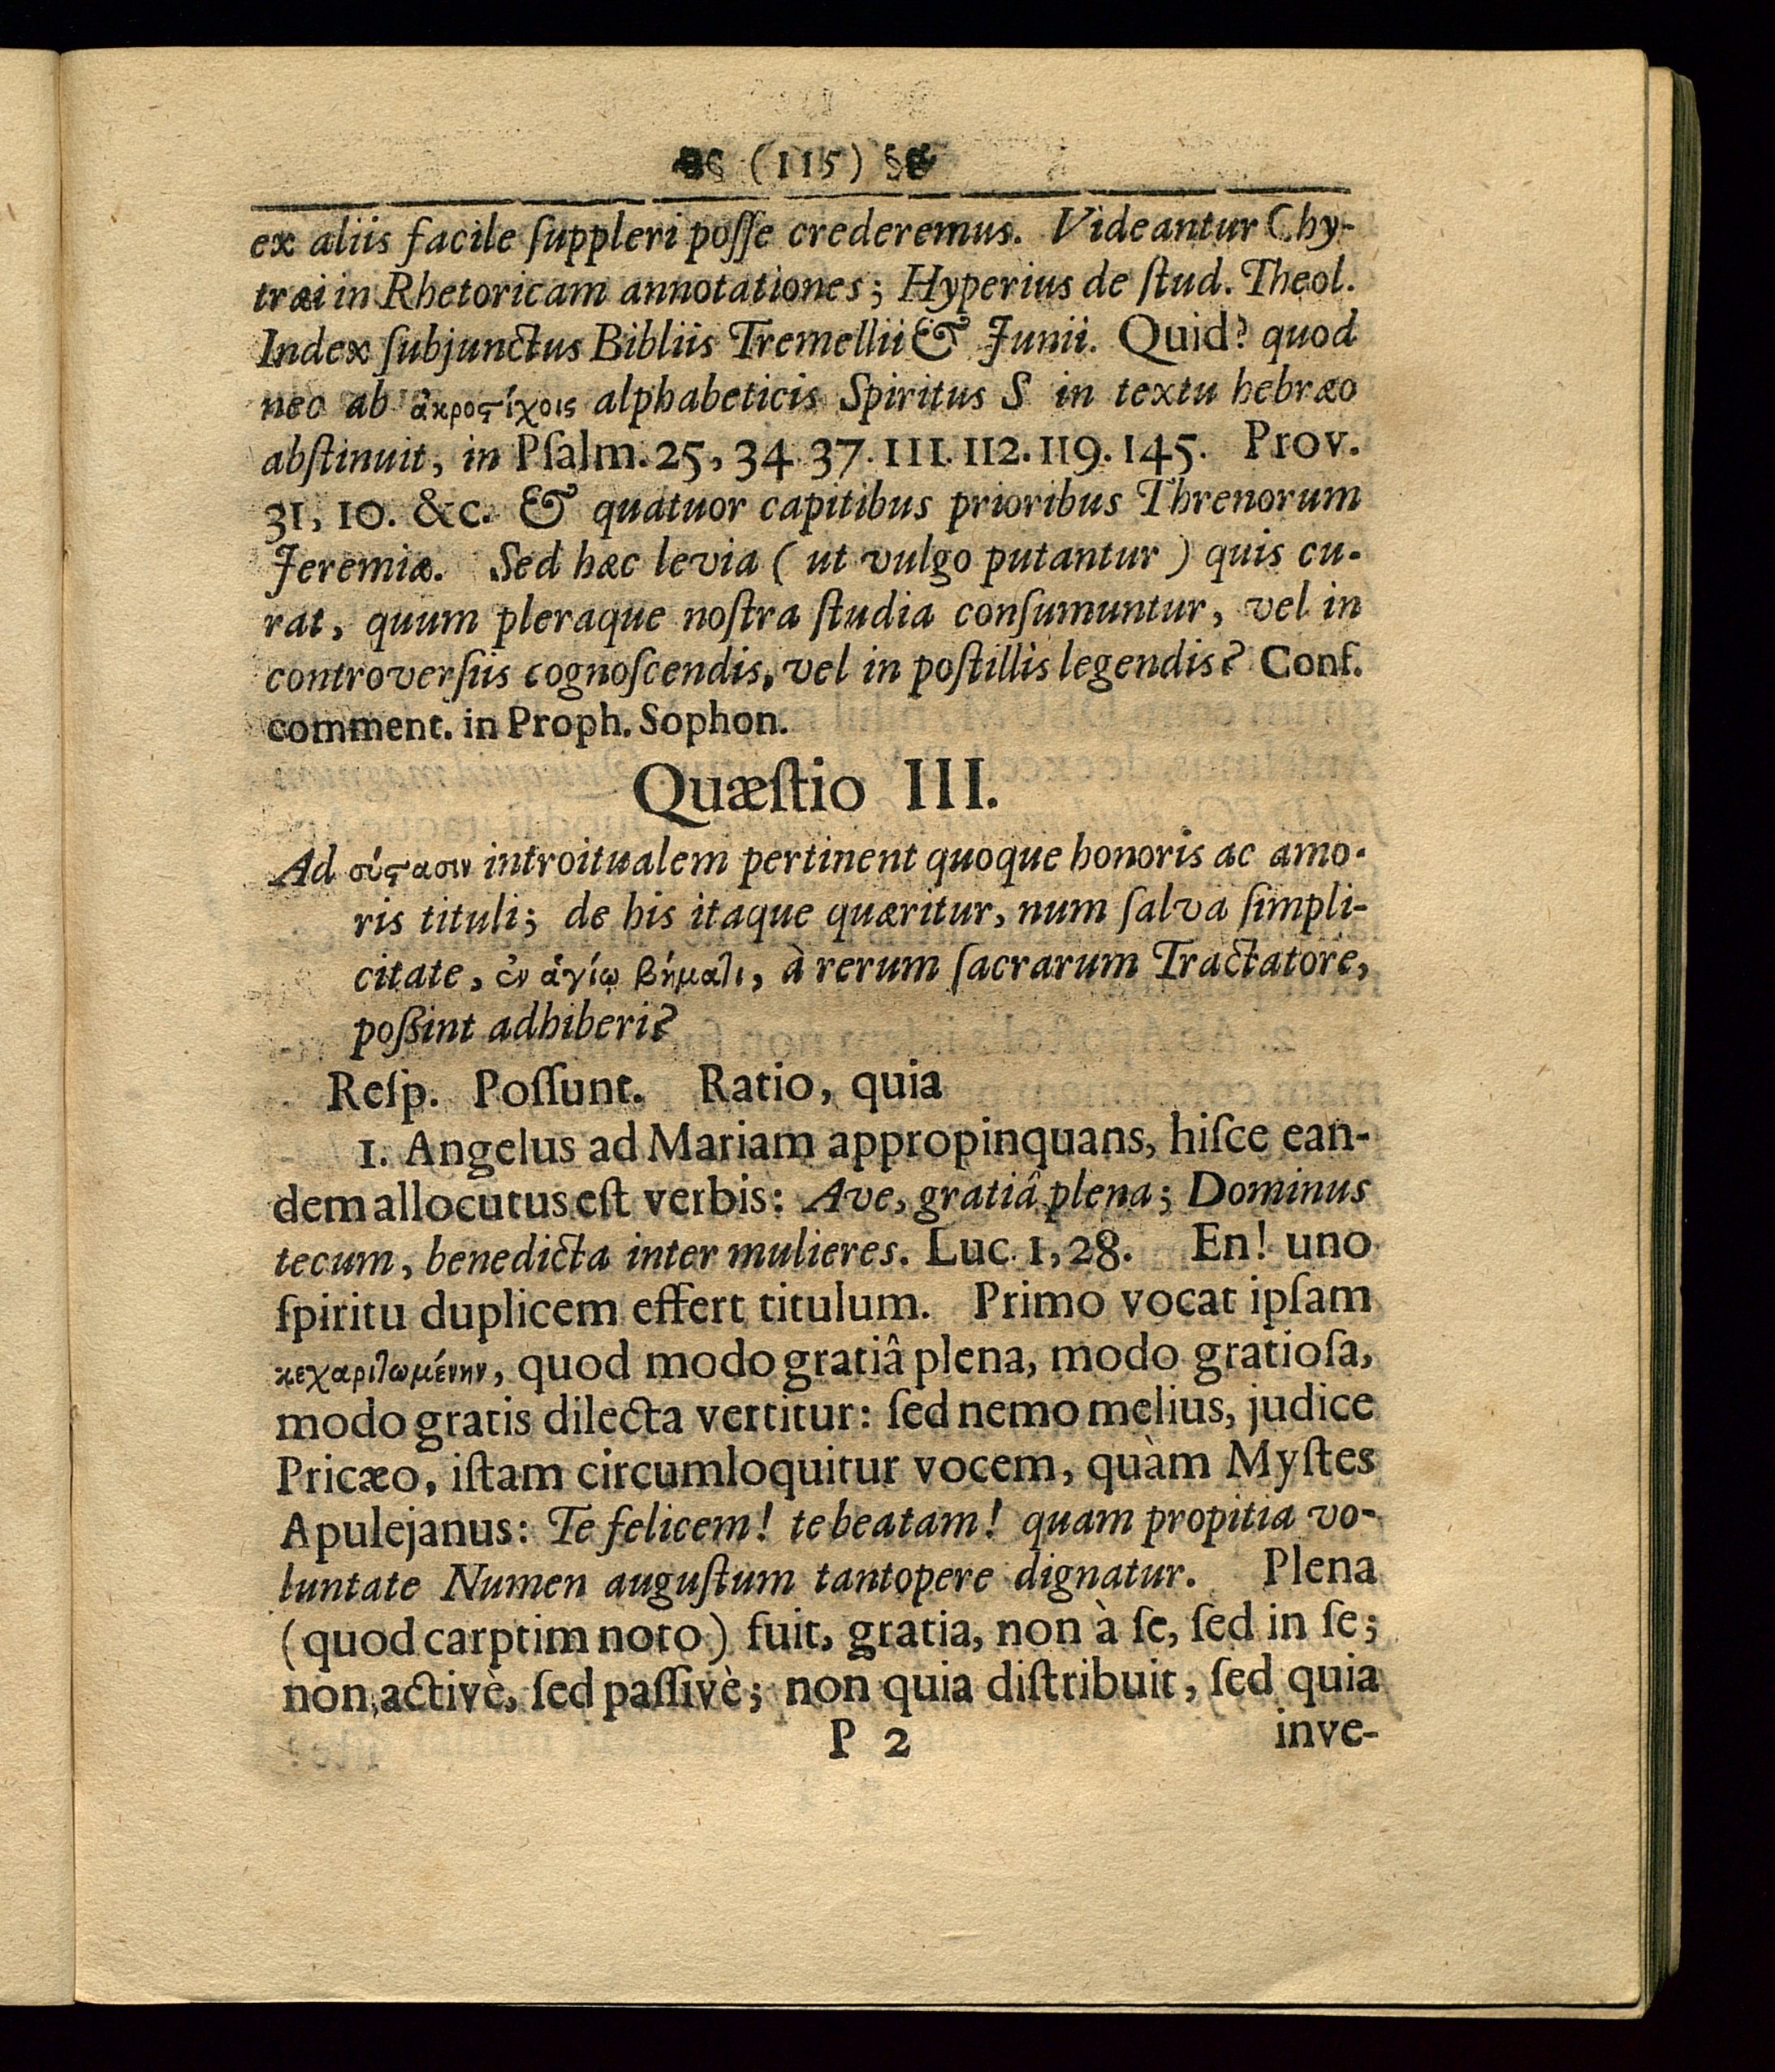 (115)
ex aliis facile ſuppleri poſſe crederemus. Videantur Chy-
træi in Rhetoricam annotationes; Hyperius de ſtud. Theol.
Index ſubjunctus Bibliis Tremellii & Junii. Quid? quod
nec ab ἀκροϛίχοις alphabeticis Spiritus S in textu hebræo
abſtinuit, in Pſalm. 25, 34. 37. 111. 112. 119. 145. Prov.
31, 10. &c. & quatuor capitibus prioribus Threnorum
Jeremiæ. Sed hæc levia ( ut vulgo putantur ) quis cu-
rat, quum pleraque noſtra ſtudia conſumuntur, vel in
controverſiis cognoſcendis, vel in poſtillis legendis? Conf.
comment. in Proph. Sophon.
Quæſtio III.
Ad σύϛασιν introitualem pertinent quoque honoris ac amo-
ris tituli; de his itaque quæritur, num ſalva ſimpli-
citate, ἐν ἁγίῳ βήματι, à rerum ſacrarum Tractatore,
poßint adhiberi?
Reſp. Poſſunt. Ratio, quia
1. Angelus ad Mariam appropinquans, hiſce ean-
dem allocutus eſt verbis: Ave, gratiâ plena; Dominus
tecum, benedicta inter mulieres. Luc. 1, 28. En! uno
ſpiritu duplicem effert titulum. Primo vocat ipſam
κεχαριτωμένην, quod modo gratiâ plena, modo gratioſa,
modo gratis dilecta vertitur: ſed nemo melius, judice
Pricæo, iſtam circumloquitur vocem, quàm Myſtes
Apulejanus: Te felicem! te beatam! quam propitia vo-
luntate Numen auguſtum tantopere dignatur. Plena
(quod carptim noto) fuit, gratia, non à ſe, ſed in ſe;
non activè, ſed paſſivè; non quia diſtribuit, ſed quia
P 2 inve-